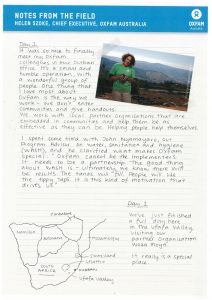 NOTES FROM THE FIELD
HELEN SZOKE, CHIEF EXECUTIVE, OXFAM AUSTRALIA
OXFAM
Australia
Day 1
It was so nice to finally
meet my Oxfam
colleagues in our Durban
office. It's a small and
humble operation, with
a wonderful group of
people. One thing that
I love most about
Oxfam is the way we
work - we don't enter
communities and give handouts.
We work with local partner organisations that are
embedded in communities and help them be as
effective as they can be. Helping people help themselves.
I spent some time with John
our
Program Advisor on water, sanitation and hygiene
(WASH), and he clarified what makes Oxfam
special: "Oxfam cannot be the implementers,
it needs to be a partnership. The good thing
about WASH is - ultimately, we know there will
be results. The tanks will fill. People will use
the tippy taps. It is this kind of motivation that
drives us."
Day 1
We've just finished
a full day here
in the Utafa Valley,
visiting our
partner organisation
Woza Moya.
It really is a special
place
ZIMBABWE
NAMIBIA
BOTSWANA
MOZAMBIQUE
SWAZILAND
LESOTHO
SOUTH
AFRICA
Utafa Valley